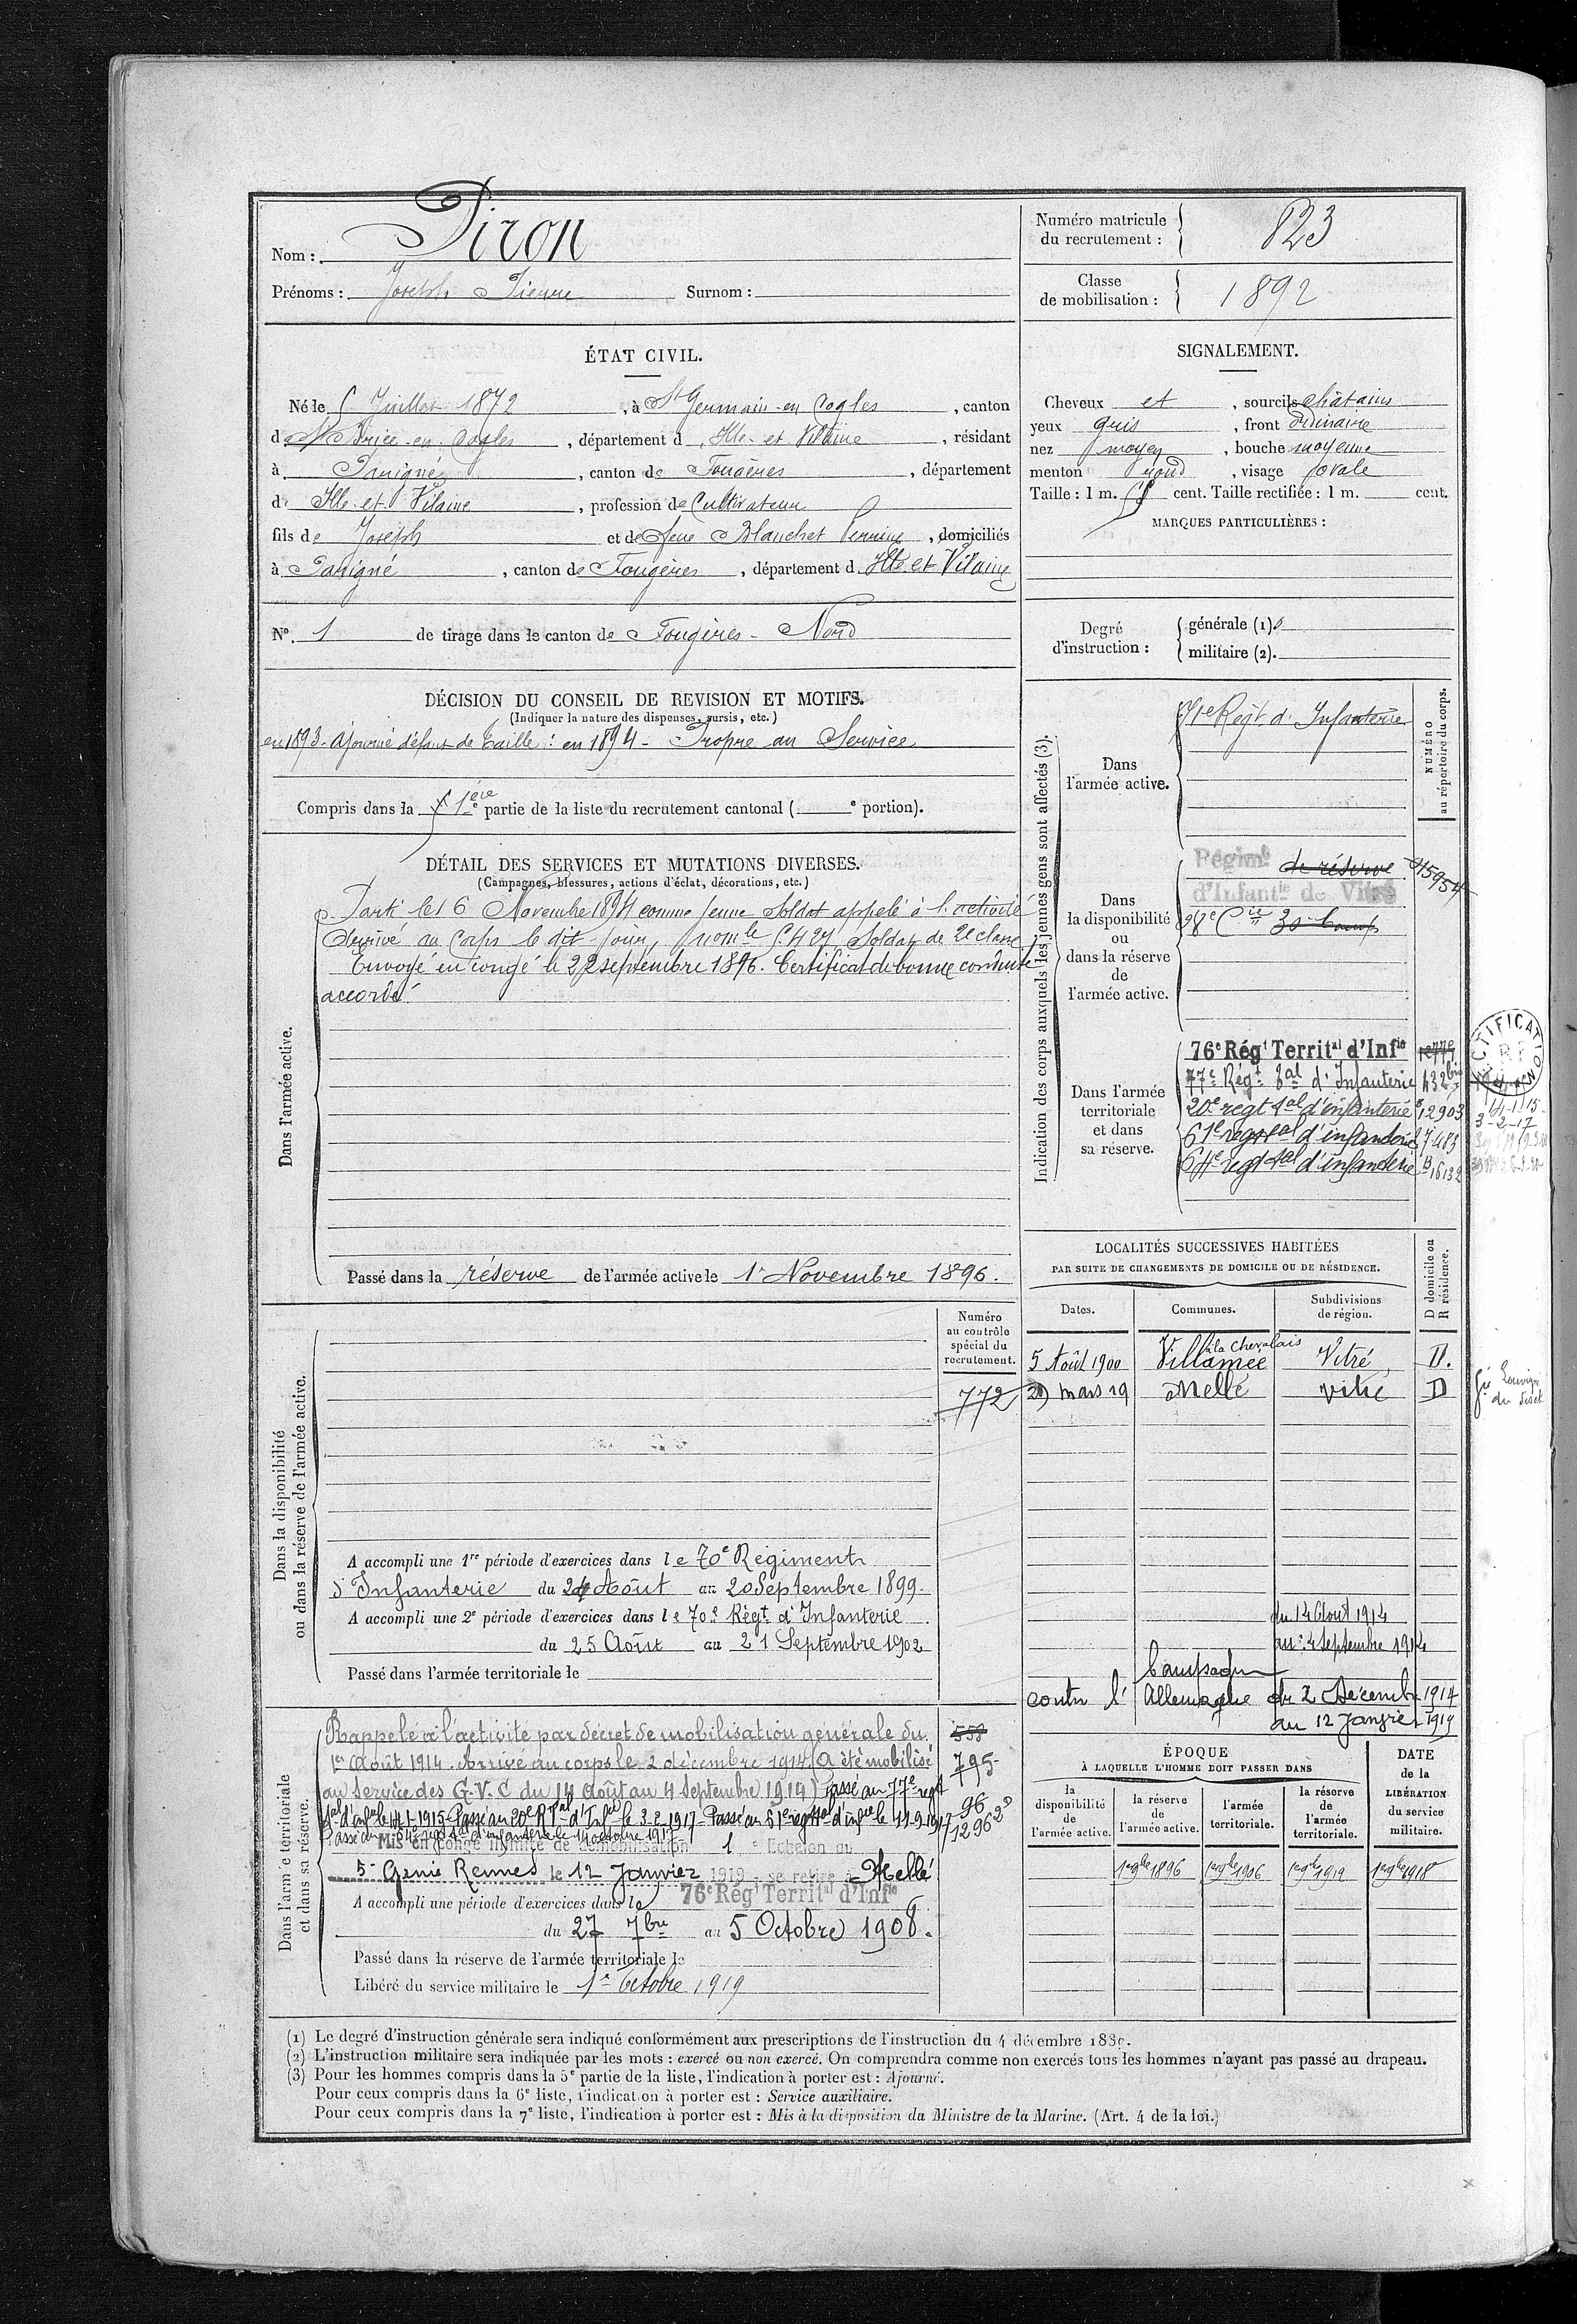 Nom : Piron
Prénoms : Joseph Pierre Surnom :
Numéro matricule du recrutement : 823
Classe de mobilisation : 1892
ÉTAT CIVIL.
Né le 5 Juillet 1872, à St Germain-en-Cogles, canton
de St Brice-en-Cogles, département d'Ille-et-Vilaine, résidant
à Parigné, canton de Fougères, département
d'Ille-et-Vilaine, profession de Cultivateur
fils de Joseph et de feue Blanchet Perrine, domiciliés
à Parigné, canton de Fougères, département d'Ille et Vilaine
N° 1 de tirage dans le canton de Fougères-Nord
SIGNALEMENT.
Cheveux et, sourcils châtains
yeux gris, front ordinaire
nez moyen, bouche moyenne
menton rond, visage ovale
Taille : 1 m. cent. Taille rectifiée : 1 m. cent.
MARQUES PARTICULIÈRES :
Degré d'instruction : générale (1)
militaire (2).
DÉCISION DU CONSEIL DE REVISION ET MOTIFS.
(Indiquer la nature des dispenses, sursis, etc.)
en 1893 - Ajourné défaut de taille : en 1894 - Propre au Service
Compris dans la 1ère partie de la liste du recrutement cantonal ( e portion).
DÉTAIL DES SERVICES ET MUTATIONS DIVERSES.
(Campagnes, blessures, actions d'éclat, décorations, etc.)
Dans l'armée active.
Parti le 16 Novembre 1894 comme jeune Soldat appelé à l'activité
Arrivé au Corps le dit jour, Soldat de 2e classe
Envoyé en congé le 22 septembre 1896. Certificat de bonne conduite
accordé.
Passé dans la réserve de l'armée active le 1er Novembre 1896.
Indication des corps auxquels les jeunes gens sont affectés (3).
NUMÉRO au répertoire du corps.
Dans l'armée active.
71e Régt d'Infanterie
Dans la disponibilité ou dans la réserve de l'armée active.
Régimt de réserve
d'Infantie de Vitré
28e Cie
Dans l'armée territoriale et dans sa réserve.
76e Régt Territal d'Infie
77e Régt tal d'Infanterie 432 bis
20e regt tal d'infanterie 12903
61e regt tal d'infanterie 7483
64e regt tal d'infanterie B16132
14-1-15
3-2-17
Dans la disponibilité ou dans la réserve de l'armée active.
Numéro au contrôle spécial du recrutement.
772
A accompli une 1re période d'exercices dans le 70e Régiment
d'Infanterie du 24 Août au 20 Septembre 1899.
A accompli une 2e période d'exercices dans le 70e Régt d'Infanterie
du 25 Août au 21 Septembre 1902
Passé dans l'armée territoriale le
LOCALITÉS SUCCESSIVES HABITÉES
PAR SUITE DE CHANGEMENTS DE DOMICILE OU DE RÉSIDENCE.
Dates. Communes. Subdivisions de région. D domicile ou R résidence.
5 Août 1900 Villamée à la Chevalais Vitré D.
29 mars 19 Mellé Vitré D
du 14 Août 1914
au 4 Septembre 1914
Campagne
contre l'Allemagne du 2 Décembre 1914
au 12 Janvier 1919
Dans l'armée territoriale et dans sa réserve.
Rappelé à l'activité par décret de mobilisation générale du
1er Août 1914. Arrivé au corps le 2 décembre 1914 (A été mobilisé
au Service des G.V.C du 14 Août au 4 Septembre 1914) Passé au 77e regt
tal d'infie le 14-1-1915 - Passé au 20e R.T. d'Infie le 3-2-1917 - Passé au 61e regt tal d'infie le 11-9-1917
Passé au 64e regt tal d'infanterie le 14 octobre 1917
Mis en congé illimité de démobilisation 1e Echelon au
5e Genie Rennes le 12 Janvier 1919 se retire à Mellé
A accompli une période d'exercices dans le 76e Régt Territal d'Infie
du 27 7bre au 5 Octobre 1908.
Passé dans la réserve de l'armée territoriale le
Libéré du service militaire le 1er Octobre 1919
558
795
96
12962
ÉPOQUE
À LAQUELLE L'HOMME DOIT PASSER DANS
la disponibilité de l'armée active. la réserve de l'armée active. l'armée territoriale. la réserve de l'armée territoriale.
DATE de la LIBÉRATION du service militaire.
1er 9bre 1896 1er 9bre 1906 1er 9bre 1912 1er 9bre 1918
(1) Le degré d'instruction générale sera indiqué conformément aux prescriptions de l'instruction du 4 décembre 1889.
(2) L'instruction militaire sera indiquée par les mots : exercé ou non exercé. On comprendra comme non exercés tous les hommes n'ayant pas passé au drapeau.
(3) Pour les hommes compris dans la 5e partie de la liste, l'indication à porter est : Ajourné.
Pour ceux compris dans la 6e liste, l'indication à porter est : Service auxiliaire.
Pour ceux compris dans la 7e liste, l'indication à porter est : Mis à la disposition du Ministre de la Marine. (Art. 4 de la loi.)